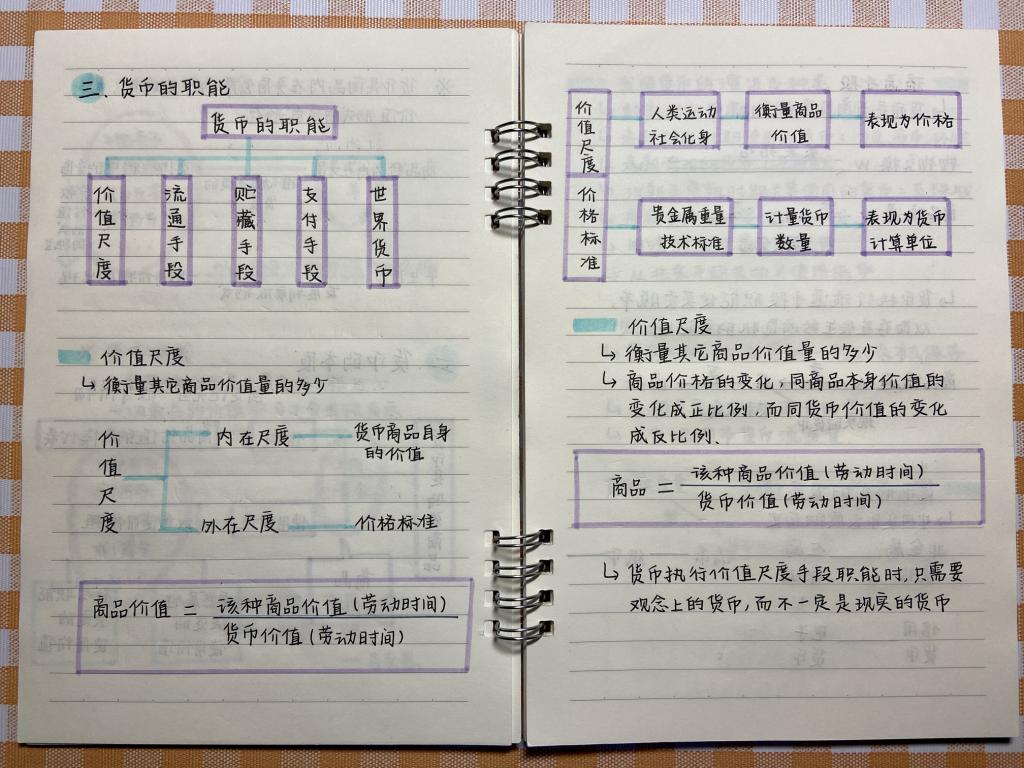 三、货币的职能
货币的职能
价值尺度
流通手段
贮藏手段
支付手段
世界货币
价值尺度
↳ 衡量其它商品价值量的多少
价值尺度
内在尺度
货币商品自身
的价值
外在尺度
价格标准
商品价值 = 该种商品价值(劳动时间)
货币价值(劳动时间)
价值尺度
人类运动
社会化身
衡量商品
价值
表现为价格
价格标准
贵金属重量
技术标准
计量货币
数量
表现为货币
计算单位
价值尺度
↳ 衡量其它商品价值量的多少
↳ 商品价格的变化,同商品本身价值的
变化成正比例,而同货币价值的变化
成反比例、
商品 = 该种商品价值(劳动时间)
货币价值(劳动时间)
↳ 货币执行价值尺度手段职能时,只需要
观念上的货币,而不一定是现实的货币